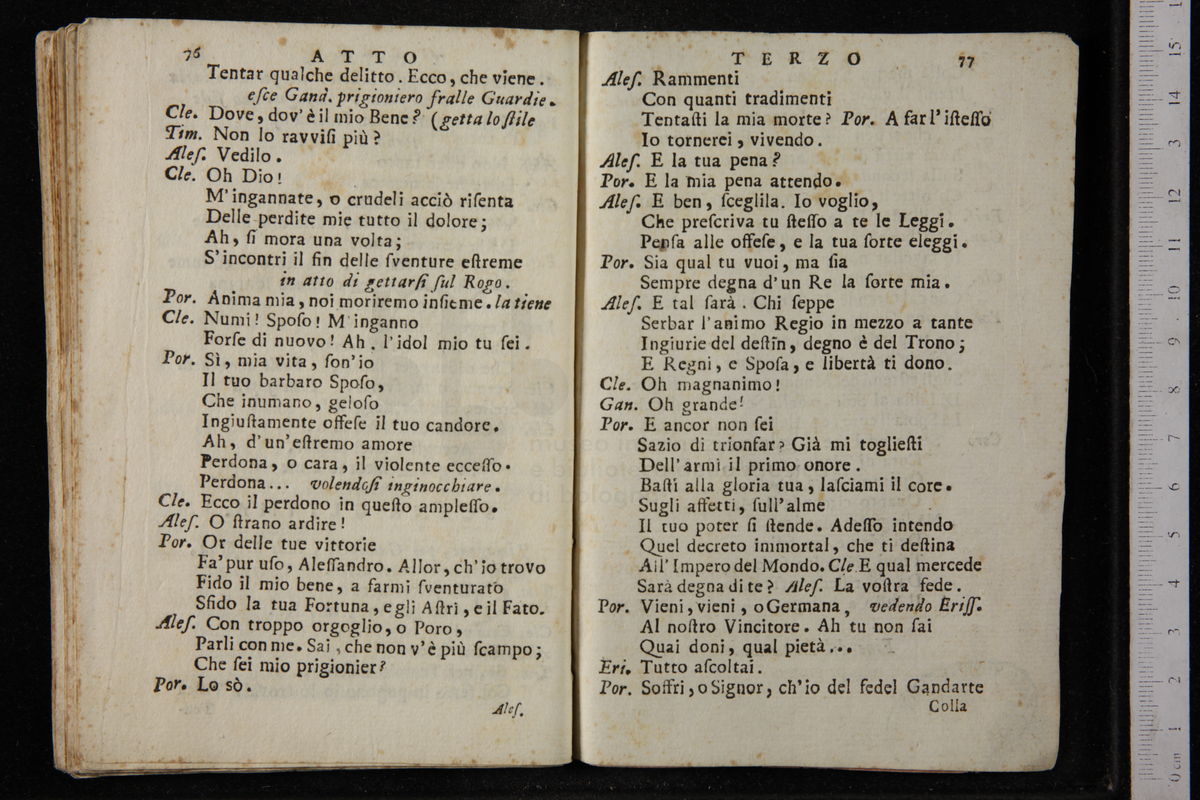 76 ATTO
Tentar qualche delitto. Ecco, che viene.
eſce Gand. prigioniero fralle Guardie.
Cle. Dove, dov' è il mio Bene? (getta lo ſtile
Tim. Non lo ravviſi più?
Aleſ. Vedilo.
Cle. Oh Dio!
M' ingannate, o crudeli acciò riſenta
Delle perdite mie tutto il dolore;
Ah, ſi mora una volta;
S' incontri il fin delle ſventure eſtreme
in atto di gettarſi ſul Rogo.
Por. Anima mia, noi moriremo inſieme. la tiene
Cle. Numi! Spoſo! M' inganno
Forſe di nuovo! Ah, l' idol mio tu ſei.
Por. Sì, mia vita, ſon' io
Il tuo barbaro Spoſo,
Che inumano, geloſo
Ingiuſtamente offeſe il tuo candore.
Ah, d' un' eſtremo amore
Perdona, o cara, il violente ecceſſo.
Perdona... volendoſi inginocchiare.
Cle. Ecco il perdono in queſto ampleſſo.
Aleſ. O ſtrano ardire!
Por. Or delle tue vittorie
Fa' pur uſo, Aleſſandro. Allor, ch' io trovo
Fido il mio bene, a farmi ſventurato
Sfido la tua Fortuna, e gli Aſtri, e il Fato.
Aleſ. Con troppo orgoglio, o Poro,
Parli con me. Sai, che non v' è più ſcampo;
Che ſei mio prigionier?
Por. Lo sò.
Aleſ.
TERZO 77
Aleſ. Rammenti
Con quanti tradimenti
Tentaſti la mia morte? Por. A far l' iſteſſo
Io tornerei, vivendo.
Aleſ. E la tua pena?
Por. E la mia pena attendo.
Aleſ. E ben, ſceglila. Io voglio,
Che preſcriva tu ſteſſo a te le Leggi.
Penſa alle offeſe, e la tua ſorte eleggi.
Por. Sia qual tu vuoi, ma ſia
Sempre degna d' un Re la ſorte mia.
Aleſ. E tal ſarà. Chi ſeppe
Serbar l' animo Regio in mezzo a tante
Ingiurie del deſtin, degno è del Trono;
E Regni, e Spoſa, e libertà ti dono.
Cle. Oh magnanimo!
Gan. Oh grande!
Por. E ancor non ſei
Sazio di trionfar? Già mi toglieſti
Dell' armi il primo onore.
Baſti alla gloria tua, laſciami il core.
Sugli affetti, ſull' alme
Il tuo poter ſi ſtende. Adeſſo intendo
Quel decreto immortal, che ti deſtina
All' Impero del Mondo. Cle E qual mercede
Sarà degna di te? Aleſ. La voſtra fede.
Por. Vieni, vieni, o Germana, vedendo Eriſſ.
Al noſtro Vincitore. Ah tu non ſai
Quai doni, qual pietà...
Eri. Tutto aſcoltai.
Por. Soffri, o Signor, ch' io del fedel Gandarte
Colla
15
14
13
12
11
10
9
8
7
6
5
4
3
2
1
0 cm